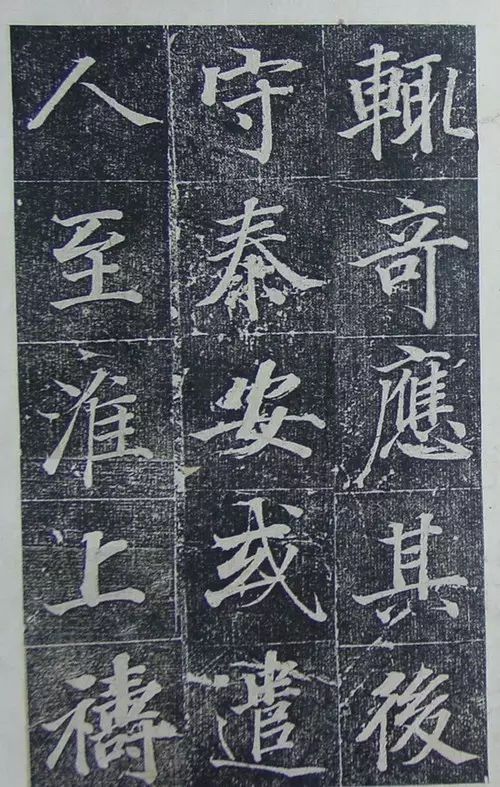 輒竒應其後
守泰安或遣
人至淮上禱